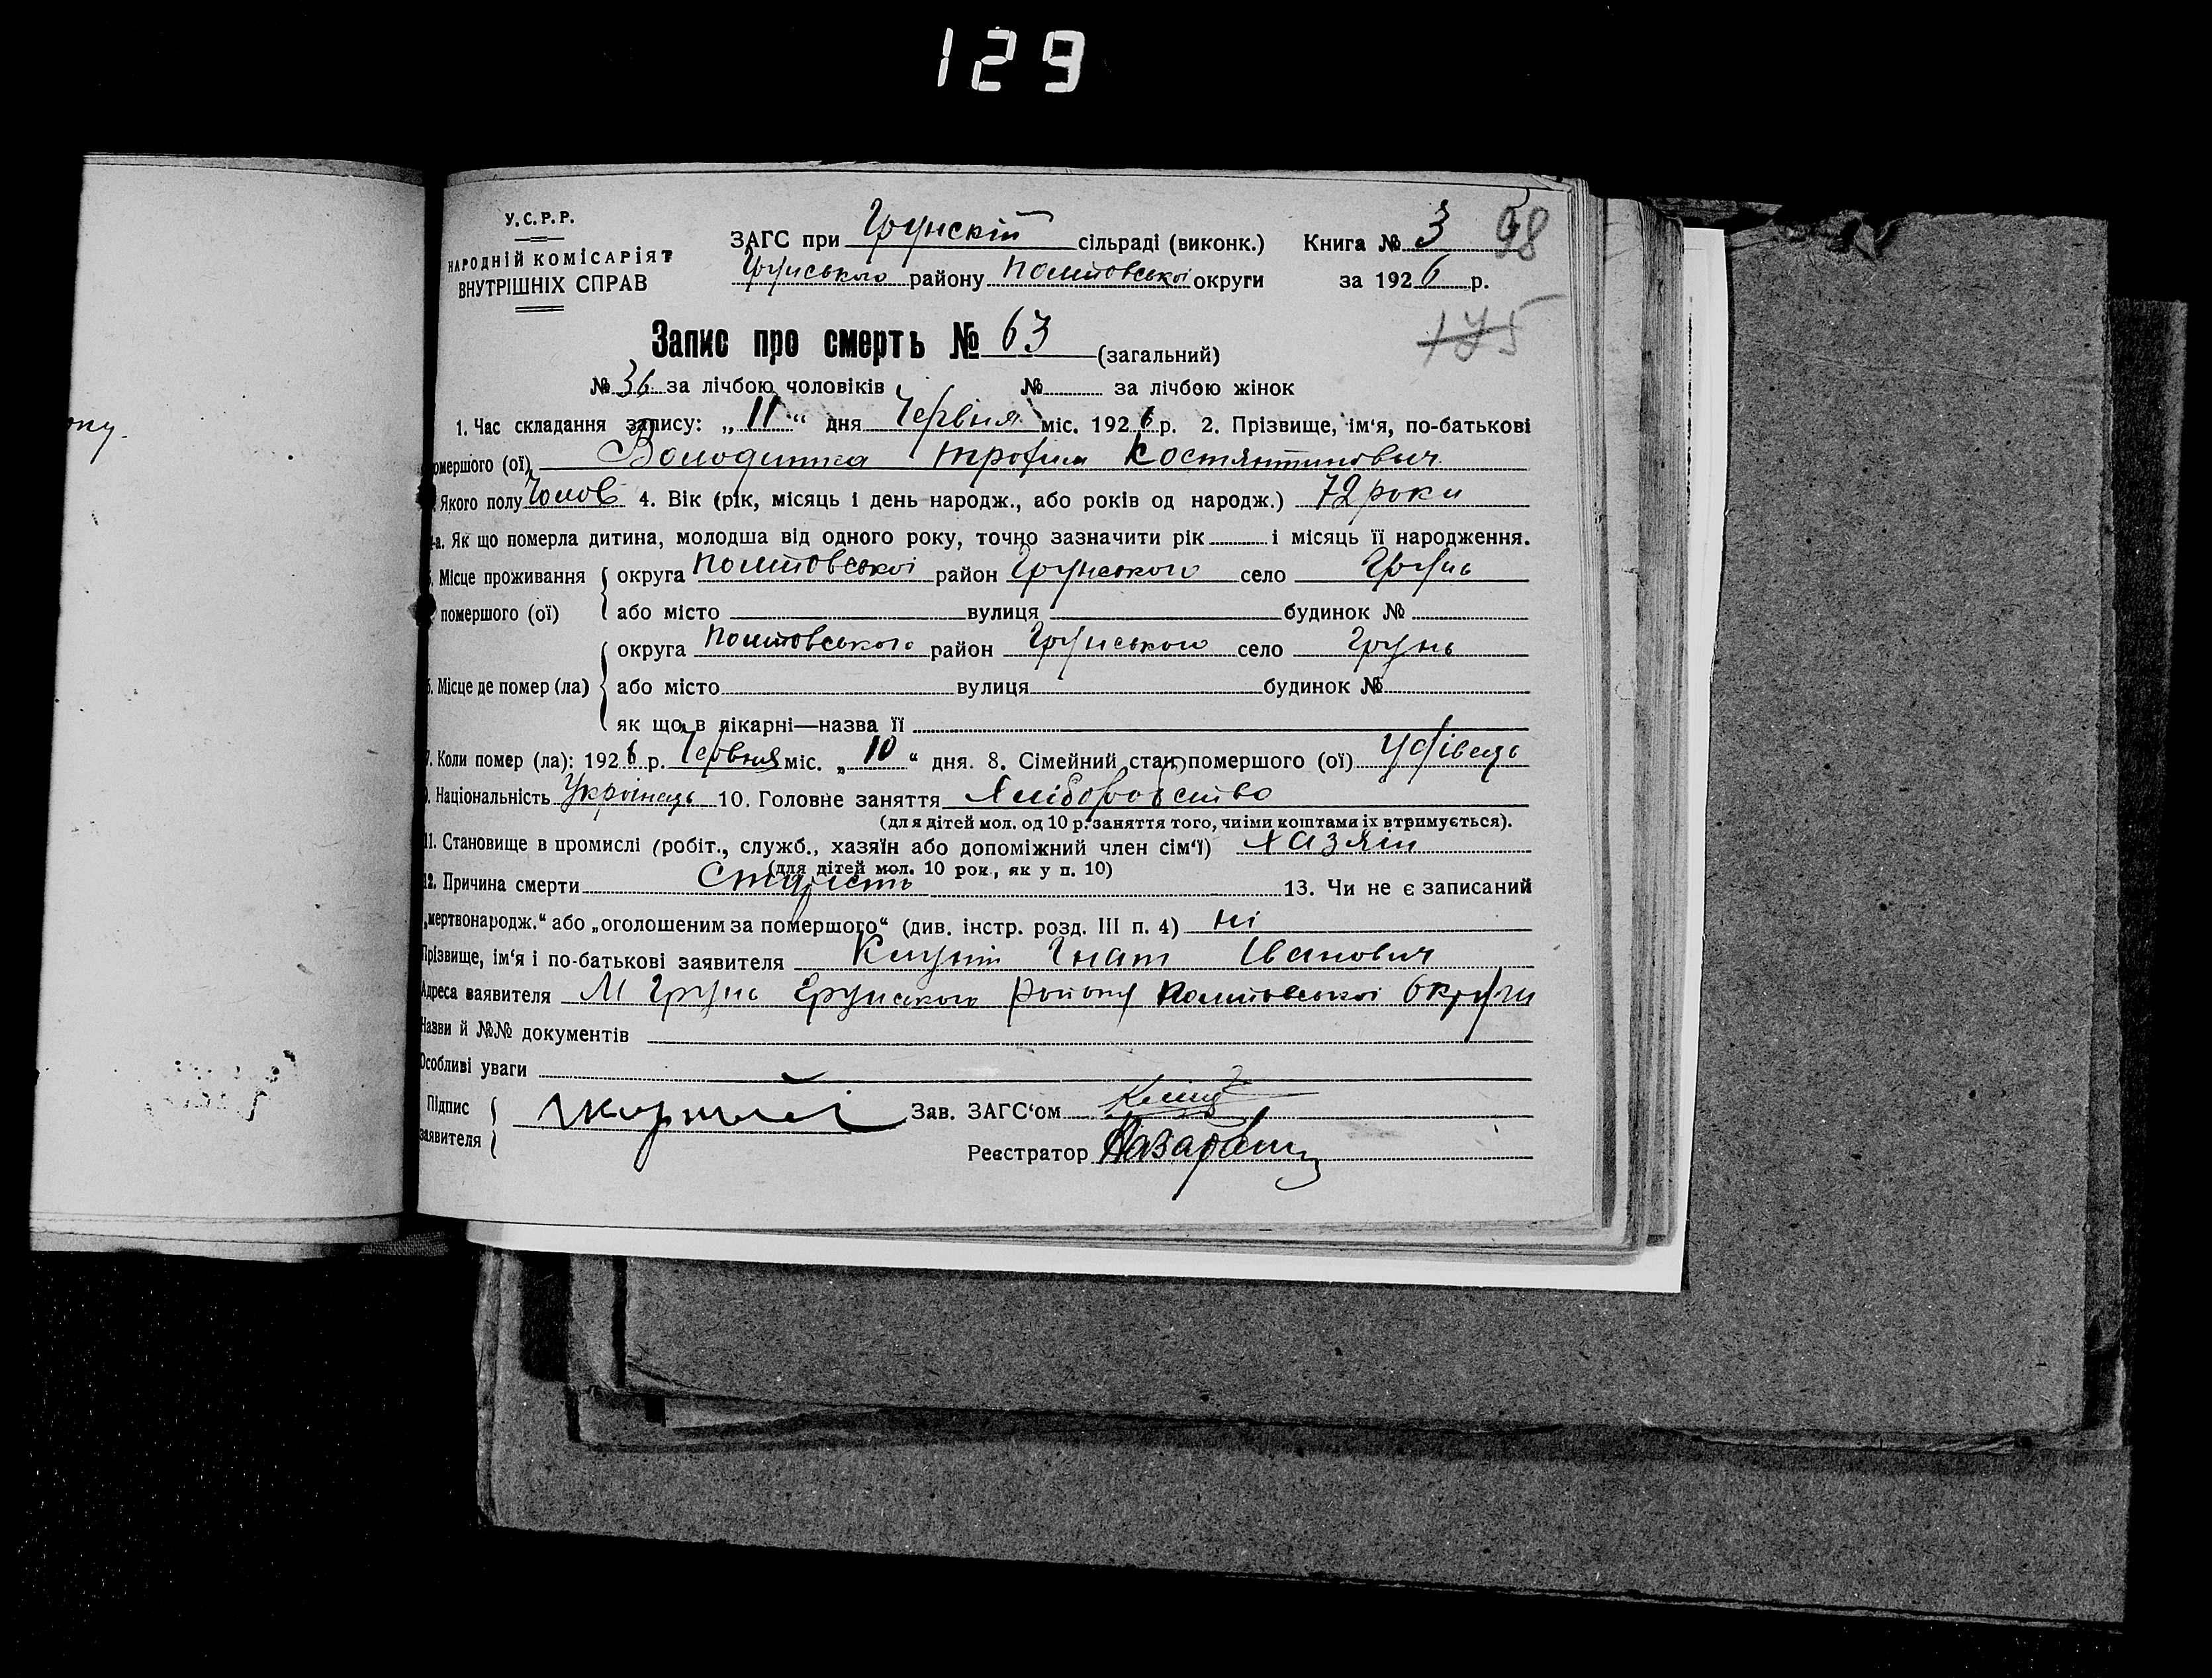 129
ону.
У.С.Р.Р.
НАРОДНІЙ КОМІСАРІЯТ
ВНУТРІШНІХ СПРАВ
ЗАГС при Грунскій сільраді (виконк.) Книга № 3 98
Грунського району Полтовської округи за 1926 р.
Запис про смерть № 63 (загальний)
175
№ 36 за лічбою чоловіків № за лічбою жінок
1. Час складання запису: „11“ дня Червня міс. 1926 р. 2. Прізвище, ім'я, по-батькові
омершого (ої) Трофим Костянтинович
Якого полу Чолов 4. Вік (рік, місяць і день народж., або років од народж.) 72 роки
-а. Як що померла дитина, молодша від одного року, точно зазначити рік і місяць її народження.
Місце проживання округа Полтовської район Грунського село Грунь
помершого (ої) або місто вулиця будинок №
округа Полтовського район Грунського село Грунь
Місце де помер (ла) або місто вулиця будинок №
як що в лікарні—назва її
7. Коли помер (ла): 1926 р. Червня міс. „10“ дня. 8. Сімейний стан помершого (ої) Удівець
Національність Українець 10. Головне заняття Хліборобство
(для дітей мол. од 10 р. заняття того, чиїми коштами їх втримується).
11. Становище в промислі (робіт., служб., хазяїн або допоміжний член сім'ї) Хазяін
(для дітей мол. 10 рок, як у п. 10)
12. Причина смерти Старість 13. Чи не є записаний
„мертвонародж.“ або „оголошеним за помершого“ (див. інстр. розд. III п. 4) ні
Прізвище, ім'я і по-батькові заявителя Гнат Іванович
Адреса заявителя М Грунь Грунського Району Полтовської Округи
Назви й №№ документів
Особливі уваги
Підпис Зав. ЗАГС'ом
заявителя
Реєстратор